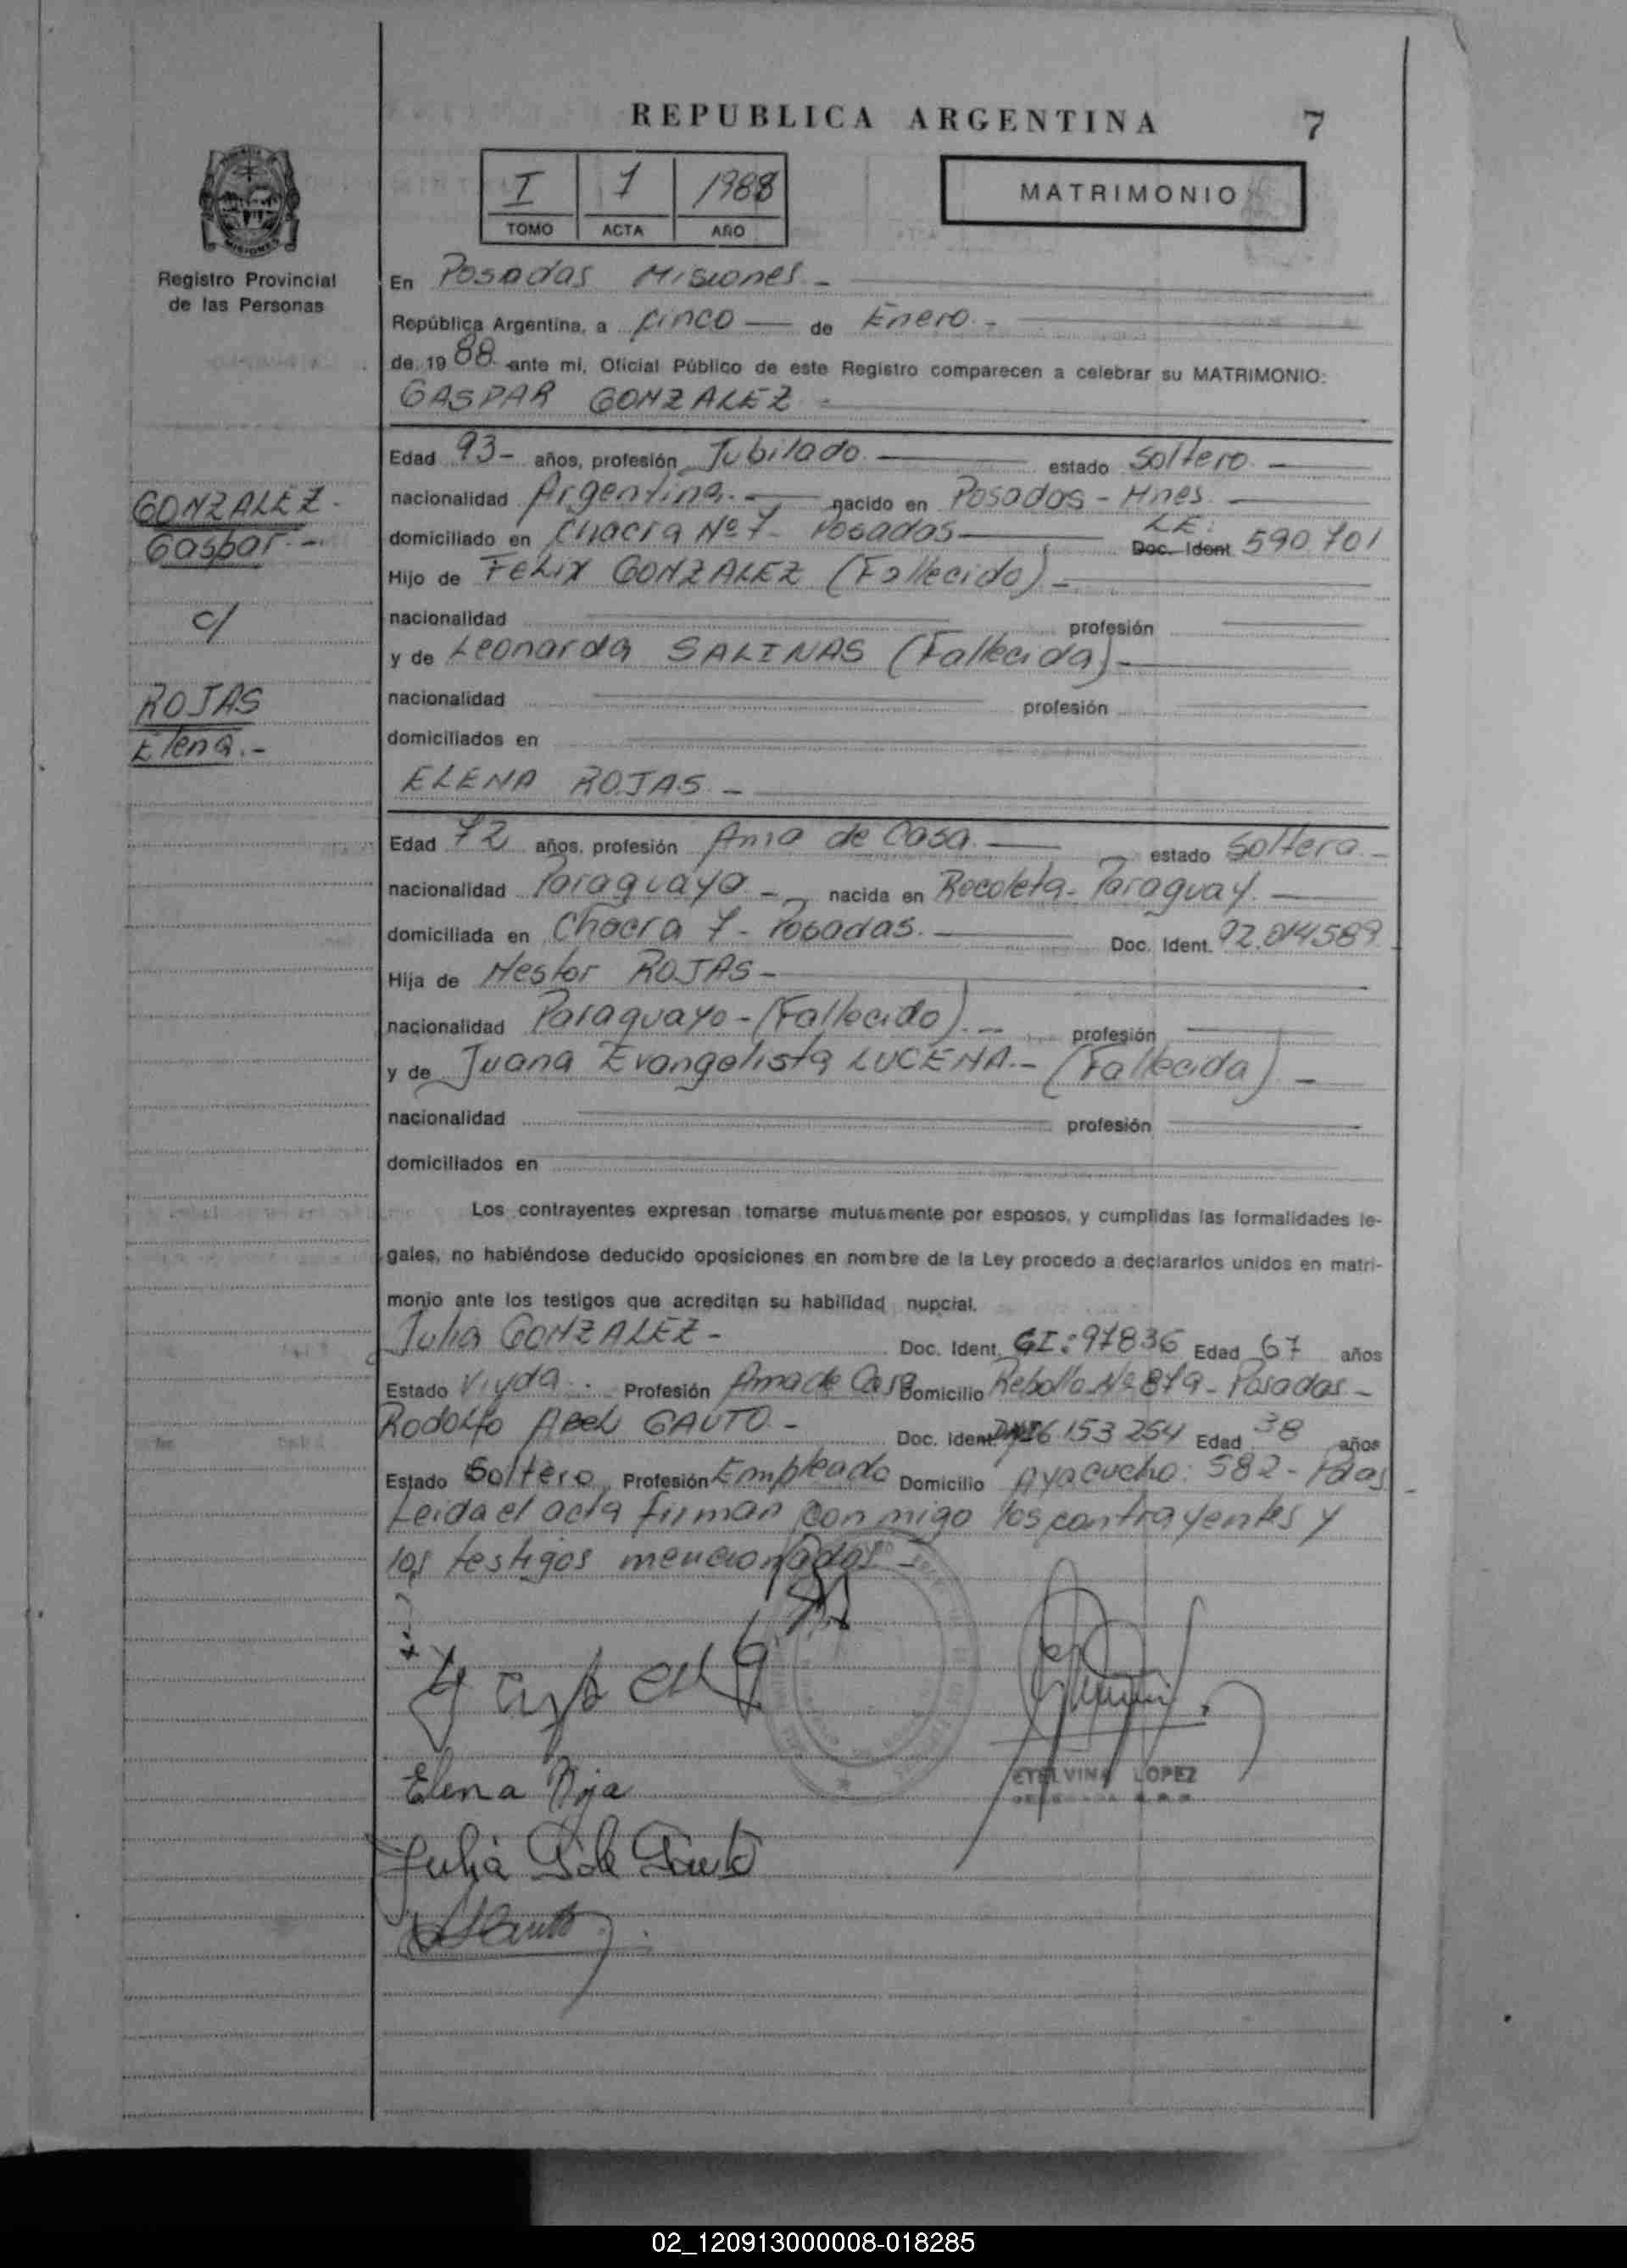 REPUBLICA ARGENTINA 7
I 1 1988
TOMO ACTA AÑO
MATRIMONIO
MISIONES
Registro Provincial
de las Personas
GONZALEZ.
Gaspar.-
c/
ROJAS
Elena.-
En Posadas Misiones.-
República Argentina, a cinco de Enero.-
de 1988 ante mi, Oficial Público de este Registro comparecen a celebrar su MATRIMONIO:
GASPAR GONZALEZ -
Edad 93- años, profesión Jubilado. estado Soltero.
nacionalidad Argentina.- nacido en Posadas - Mnes.
domiciliado en Chacra Nº 7- Posadas LE: Doc. Ident 590701
Hijo de Felix GONZALEZ (Fallecido).-
nacionalidad profesión
y de Leonarda SALINAS (Fallecida)-
nacionalidad profesión
domiciliados en
ELENA ROJAS.-
Edad 72 años, profesión Ama de Casa. estado Soltera.-
nacionalidad Paraguaya - nacida en Recoleta - Paraguay.
domiciliada en Chacra 7 - Posadas. Doc. Ident. 92.014589
Hija de Nestor ROJAS-
nacionalidad Paraguayo - (Fallecido).- profesión
y de Juana Evangelista LUCENA.- (Fallecida) -
nacionalidad profesión
domiciliados en
Los contrayentes expresan tomarse mutuamente por esposos, y cumplidas las formalidades le-
gales, no habiéndose deducido oposiciones en nombre de la Ley procedo a declararlos unidos en matri-
monio ante los testigos que acreditan su habilidad nupcial.
Julia GONZALEZ - Doc. Ident. CI: 97836 Edad 67 años
Estado Viuda. Profesión Ama de Casa Domicilio Rebollo Nº 879 - Posadas -
Rodolfo Abel GAUTO - Doc. Ident. 153254 Edad 38 años
Estado Soltero Profesión Empleado Domicilio Ayacucho: 582 - Pdas
Leida el acta firman con migo los contrayentes y
los testigos mencionados -
Elena Roja
ETELVINA LOPEZ
Julia G de Gauto
02_120913000008-018285